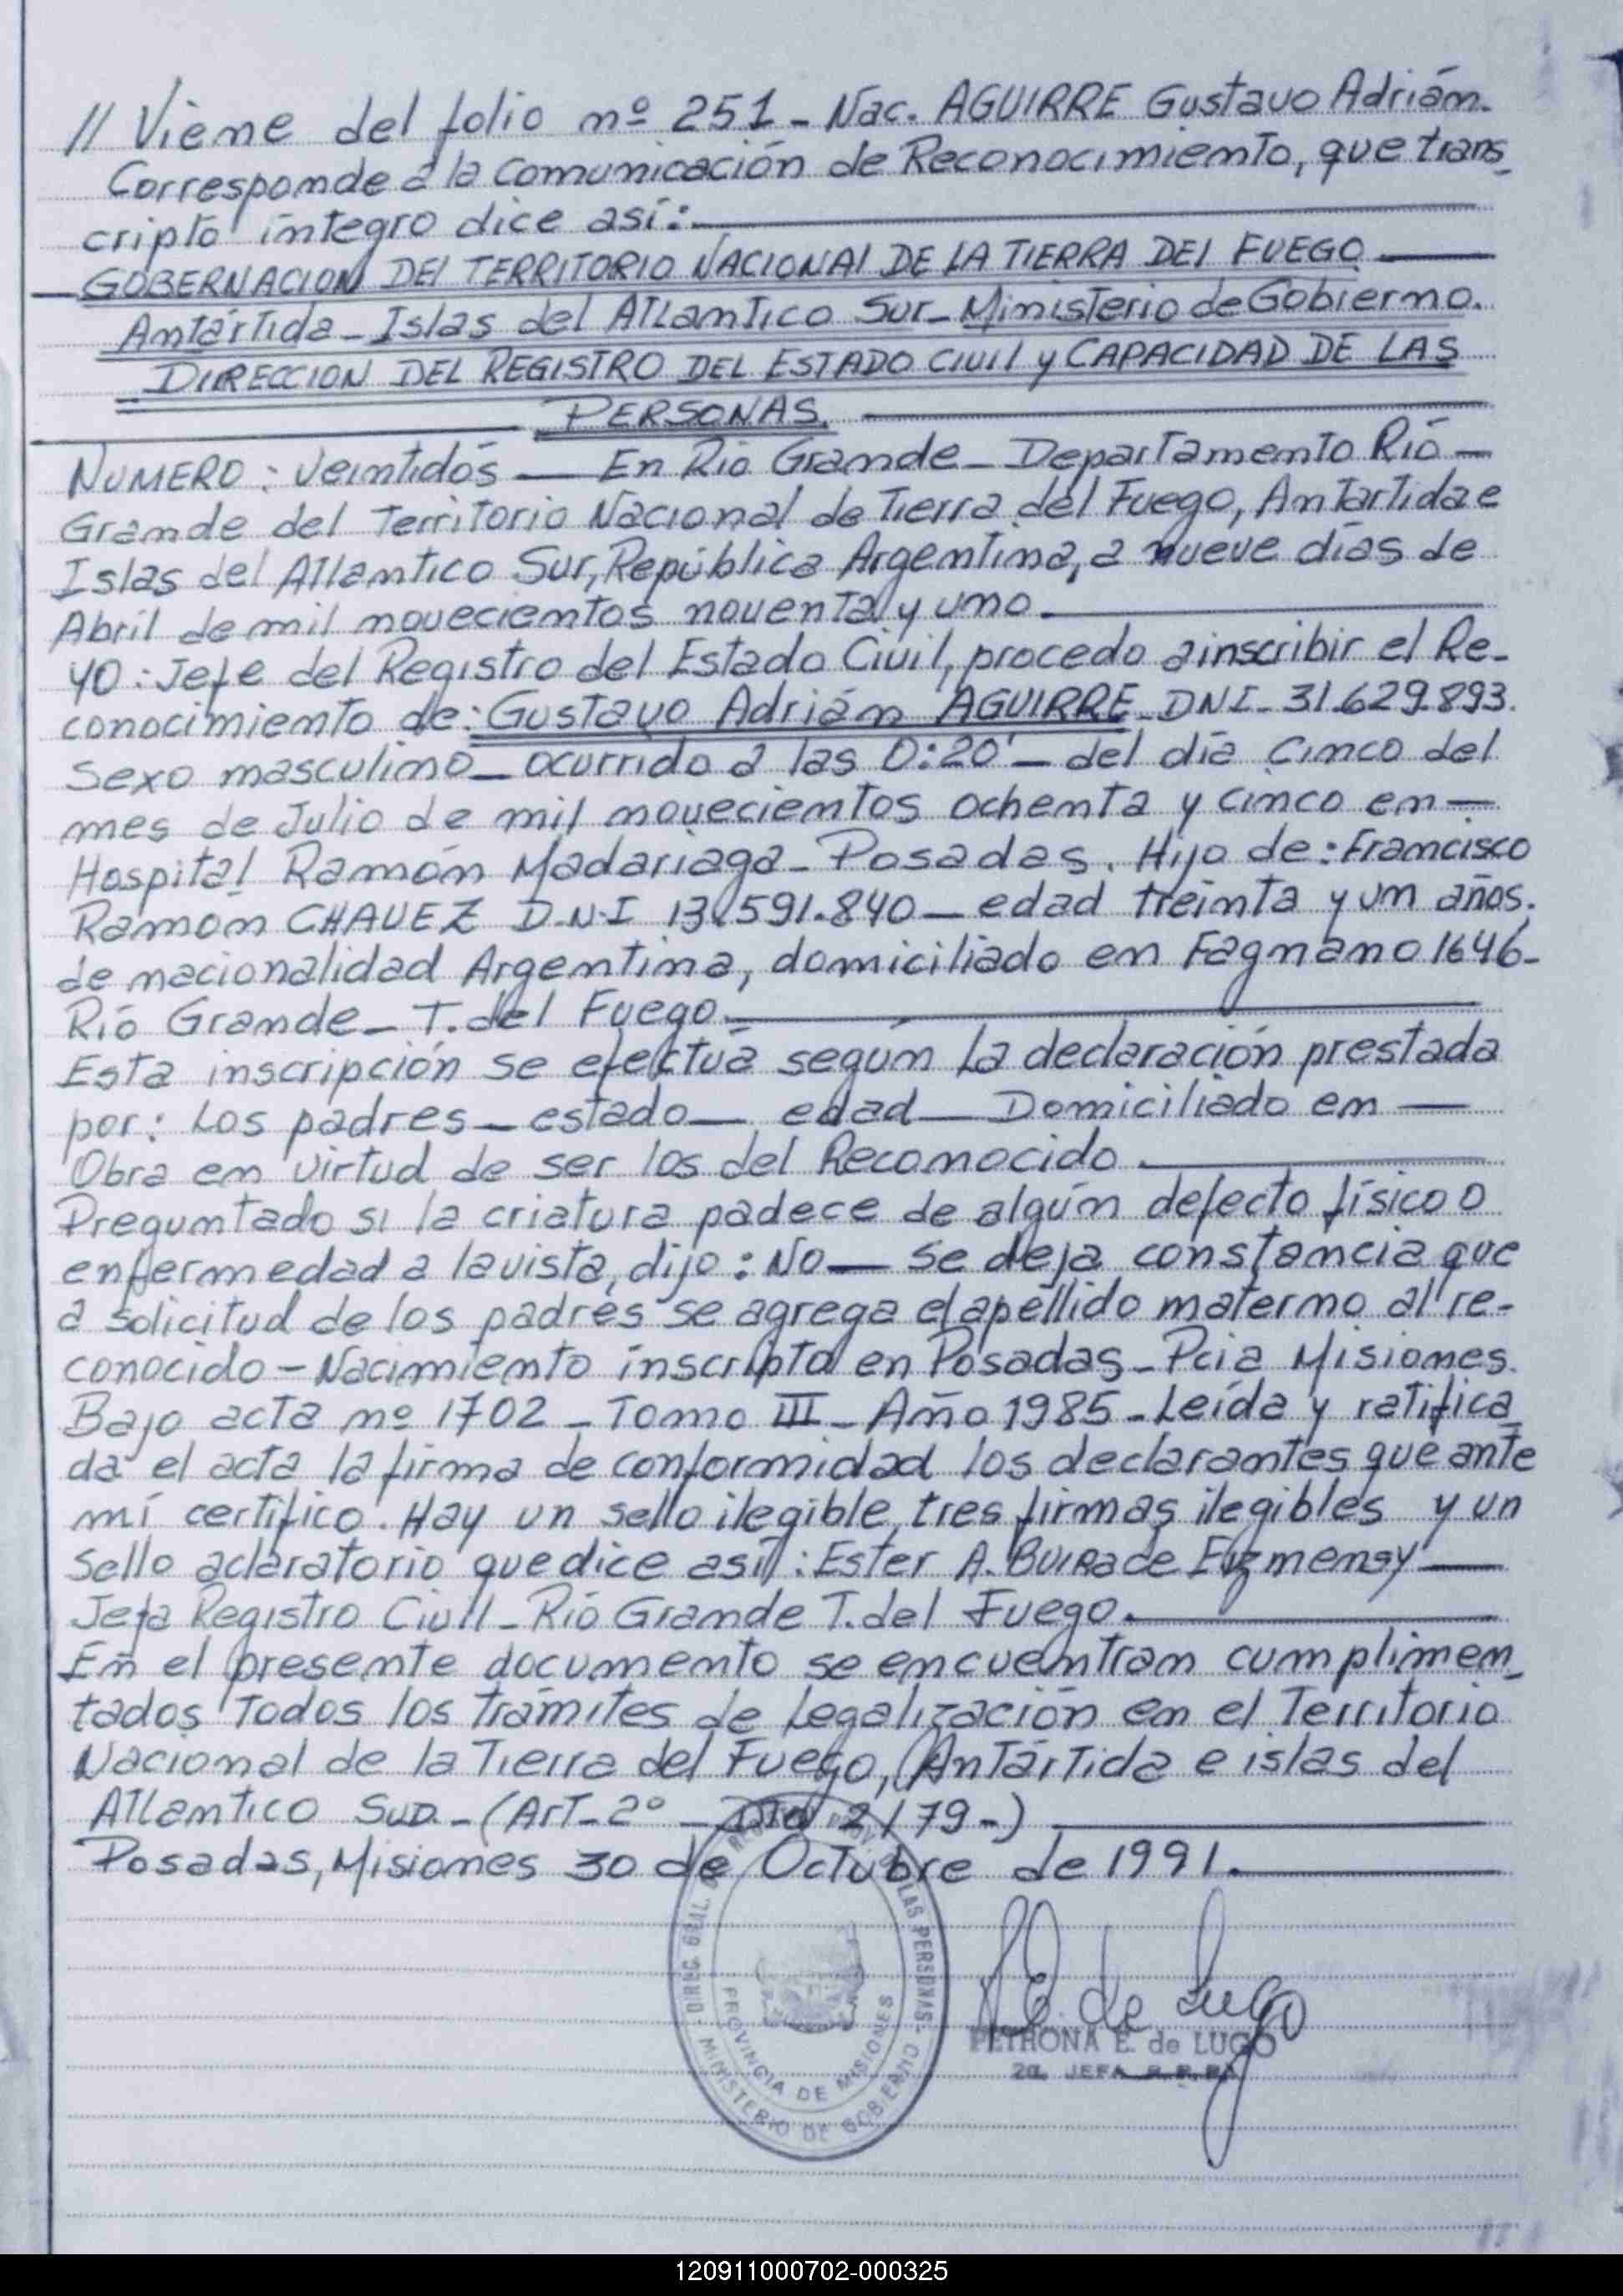 // Viene del folio nº 251 - Nac. AGUIRRE Gustavo Adrián.
Corresponde a la Comunicación de Reconocimiento, que trans
cripto íntegro dice así:
GOBERNACION DEL TERRITORIO NACIONAL DE LA TIERRA DEL FUEGO
Antártida - Islas del Atlantico Sur - Ministerio de Gobierno.
DIRECCION DEL REGISTRO DEL ESTADO CIVIL y CAPACIDAD DE LAS
PERSONAS.
NUMERO: Veintidós — En Rió Grande - Departamento Rió -
Grande del Territorio Nacional de Tierra del Fuego, Antartida e
Islas del Atlantico Sur, República Argentina, a nueve días de
Abril de mil novecientos noventa y uno.
YO: Jefe del Registro del Estado Civil, procedo a inscribir el Re-
conocimiento de: Gustavo Adrián AGUIRRE - DNI - 31.629.893.
Sexo masculino - ocurrido a las 0:20' - del día Cinco del
mes de Julio de mil novecientos ochenta y cinco en -
Hospital Ramón Madariaga - Posadas. Hijo de: Francisco
Ramón CHAVEZ D.N.I 13.591.840 - edad treinta y un años.
de nacionalidad Argentina, domiciliado en Fagnano 1646-
Rió Grande - T. del Fuego.
Esta inscripción se efectúa según la declaración prestada
por: Los padres - estado - edad - Domiciliado en -
Obra en virtud de ser los del Reconocido.
Preguntado si la criatura padece de algún defecto físico o
enfermedad a la vista, dijo: No - Se deja constancia que
a solicitud de los padres se agrega el apellido materno al re-
conocido - Nacimiento inscripta en Posadas - Pcia Misiones.
Bajo acta nº 1702 - Tomo III - Año 1985 - Leída y ratifica
da el acta la firma de conformidad los declarantes que ante
mí certifico. Hay un sello ilegible, tres firmas ilegibles y un
sello aclaratorio que dice así: Ester A. de
Jefa Registro Civil - Rió Grande T. del Fuego.
En el presente documento se encuentran cumplimen
tados Todos los Trámites de Legalización en el Territorio
Nacional de la Tierra del Fuego, Antártida e islas del
Atlantico Sud. - (Art - 2º - 2/79-)
Posadas, Misiones 30 de Octubre de 1991.
DIREC. GRAL. DE LAS PERSONAS
PROVINCIA DE MISIONES
MINISTERIO DE GOBIERNO
P.E. de Lugo
PETRONA E. de LUGO
2a. JEFA
120911000702-000325